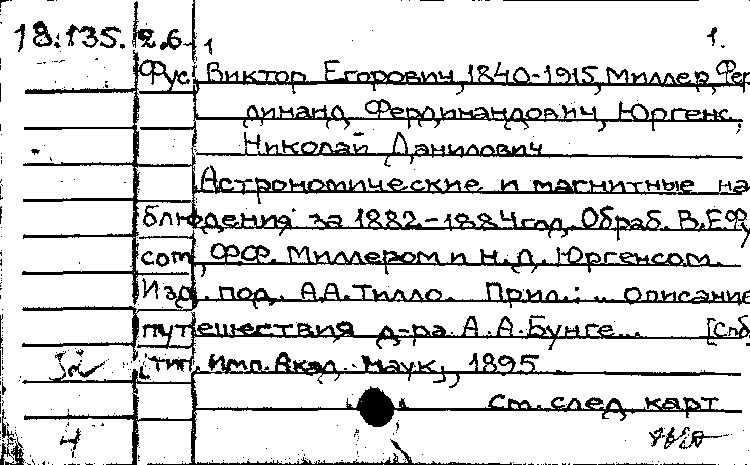 18.135. 2.6-1 1.
Фус, Виктор Егорович, 1840-1915, Миллер, Фер
динанд Фердинандович, Юргенс,
Николай Данилович
Астрономические и магнитные на
блюдения за 1882-1884 год. Обраб. В.Е.Ф,
сот, Ф.Ф. Миллером и Н.Д. Юргенсом.
Изд. под. А.А.Тилло. Прил.: .. описание
путешествия д-ра А.А.Бунге... [Спб,
тип. Имп.Акад. наук], 1895
См. след. карт
4